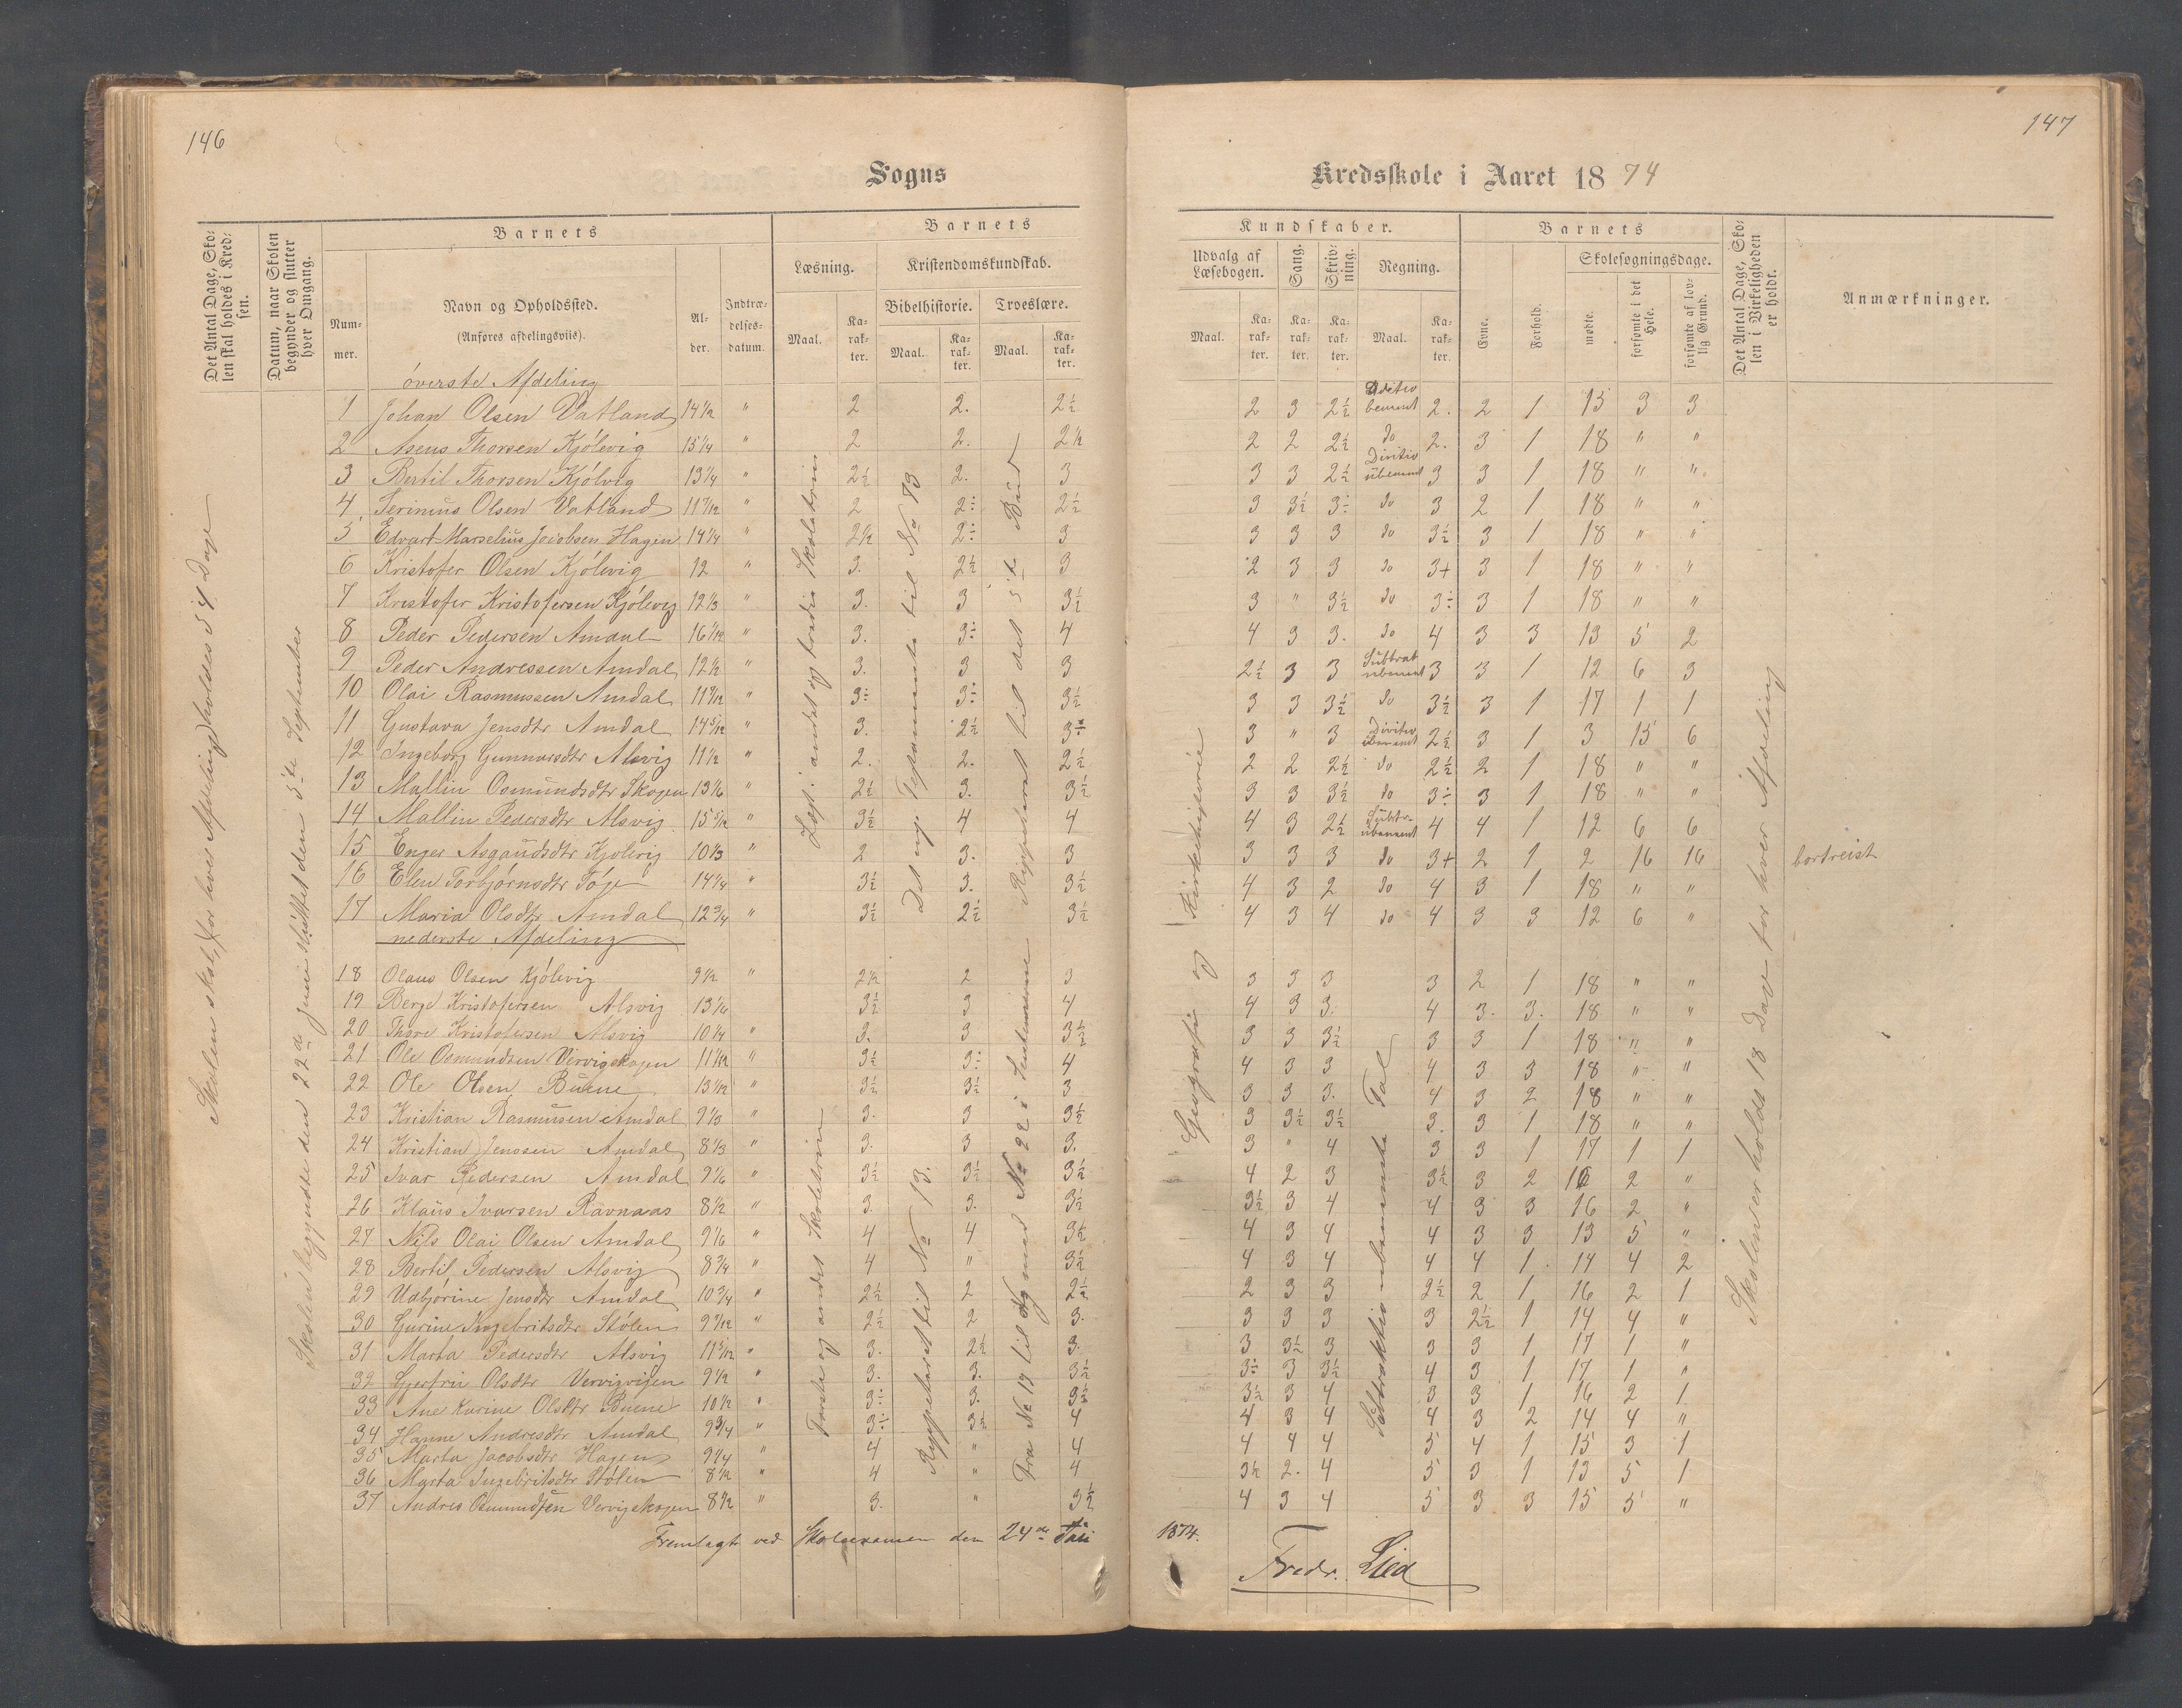 146
147
Sogns
Kredsskole i Aaret 1874
Det Antal Dage, Skolen skal holdes i Kredsen.
Datum, naar Skolen begynder og slutter hver Omgang.
Barnets
Nummer.
Navn og Opholdssted.
(Anføres afdelingsviis).
Alder.
Indtrædelsesdatum.
Barnets
Læsning.
Kristendomskundskab.
Bibelhistorie.
Troeslære.
Maal.
Karakter.
Maal.
Karakter.
Maal.
Karakter.
Kundskaber.
Udvalg af Læsebogen.
Sang.
Skrivning.
Regning.
Maal.
Karakter.
Karakter.
Karakter.
Maal.
Karakter.
Barnets
Evne.
Forhold.
Skolesøgningsdage.
mødte.
forsømte i det Hele.
forsømte af lovlig Grund.
Det Antal Dage, Skolen i Virkeligheden er holdt.
Anmærkninger.
Skolen skal, for hver Afdeling, holdes i 54 Dage
Skolen begyndte den 22de Juni sluttet den 5te September
øverste Afdeling
1 Johan Olsen Vatland 14 1/2 " 2 2. 2½ 2 3 2½ 2. 2 1 15 3 3
2 Aseus Thorsen Kjölevig 15 1/4 " 2 2. 2½ 2 2 2½ do 2. 3 1 18 " "
3 Bertil Thorsen Kjölvig 13 1/4 " 2½ 2. 3 3 3 2½ Divitio ubenævnt 3 3 1 18 " "
4 Serinius Olsen Vatland 11 7/12 " 2 2÷ 2½ 3 3½ 3÷ do 3 2 1 18 " "
5 Edvart Marselius Jacobsen Hagen 14 1/4 " 2½ 2÷ 3 3 3 3 do 3½ 3 1 18 " "
6 Kristofer Olsen Kjölevig 12 " 3. 2½ 3 2 3 3 do 3+ 3 1 18 " "
7 Kristofer Kristofersen Kjölevig 12 1/3 " 3. 3 3½ 3 " 3½ do 3÷ 3 1 18 " "
8 Peder Pedersen Amdal 16 1/12 " 3. 3÷ 4 4 3 3. do 4 3 3 13 5 2
9 Peder Andreasen Amdal 12 1/2 " 3. 3 3 2½ 3 3 Subtrak ubenævnt 3 3 1 12 6 3
10 Olai Rasmussen Amdal 11 9/12 " 3÷ 3÷ 3½ 3 3 3½ do 3½ 3 1 17 1 1
11 Gustava Jensdtr Amdal 14 5/12 " 3. 2½ 3÷ 3 " 3 Divitio ubenævnt 2½ 3 1 3 15 6
12 Ingeborg Gunnarsdtr Alsvig 11 1/2 " 2. 2. 2½ 2 2 2½ do 2½ 2 1 18 " "
13 Mallin Osmundsdtr Skogen 13 1/6 " 2½ 3. 3½ 3 3 3½ do 3÷ 3 1 18 " "
14 Mallin Pedersdtr Alsvig 15 5/12 " 3½ 4 4 4 3 2½ Subtr. ubenævnt 4 4 1 12 6 6
15 Enger Asgaudsdtr Kjolevig 10 1/3 " 2 3. 3 3 3 3 do 3+ 2 1 2 16 16 bortreist
16 Elen Torbjörnsdtr Töge 14 1/4 " 3½ 3. 3½ 4 3 2 do 4 3 1 18 " "
17 Maria Olsdtr Amdal 12 3/4 " 3½ 2½ 3½ 4 3 4 do 4 3 3 12 6 "
nederste Afdeling
18 Olaus Olsen Kjölevig 9 1/2 " 2½ 2 3 3 3 3 3 2 1 18 " "
19 Berge Kristofersen Alsvig 13 1/6 3½ 3 4 4 3 3. 4 3. 3. 18 " "
20 Thore Kristofersen Alsvig 10 1/4 " 3. 3 3½ 3 3 3½ 3 3 1 18 " "
21 Ole Osmundsen Vervigskogen 11 1/12 " 3½ 3÷ 4 4 3 3 4 3 3 18 " "
22 Ole Olsen Buene 13 1/12 " 3½ 3½ 3 3 3 3. 4 3 2 18 " "
23 Kristian Rasmusen Amdal 9 1/3 " 3. 3 3½ 3 3½ 3½ 3. 3 1 18 " "
24 Kristian Jenssen Amdal 8 1/3 " 3. 3 3. 3 " 4 3 3 1 17 1 1
25 Ivar Pedersen Amdal 9 1/6 " 3½ 3½ 3½ 4 2 3 3½ 3 2 16 2 "
26 Klaus Ivarsen Ravnaas 8 1/2 " 3. 3. 3½ 3½ 3 4 4 3 3 16 2 "
27 Nils Olai Olsen Amdal 9 1/6 " 4 4 3½ 4 3 4 4 3 3 13 5 "
28 Bertil Pedersen Alsvig 8 3/4 " 4 " 3½ 4 3 4 4 4 1 14 4 2
29 Udbjörine Jensdtr Amdal 10 3/4 " 2½ 2 2½ 2 3 3 2½ 2 1 16 2 1
30 Gurine Ingebritsdtr Stölen 9 7/12 " 2½ 2 3. 3 3 3 3 2½ 1 14 4 "
31 Marta Pedersdtr Alsvig 11 5/12 " 3. 2½ 3. 3 3½ 3 3 3 1 17 1 "
32 Gjertru Olsdtr Vervigvigen 9 1/2 " 3. 3. 3½ 3÷ 3 3½ 4 3 1 17 1 "
33 Ane Karine Olsdtr Buene 10 1/2 " 3÷ 3. 3½ 3½ 3 4 3 3 1 16 2 1
34 Hanne Andresdtr Amdal 9 3/4 " 3÷ 3½ 4 4 3 4 4 3 2 14 4 "
35 Marta Jacobsdtr Hagen 9 1/4 " 4 " 4 4 4 4 5 4 1 15 3 1
36 Marta Ingebritsdtr Stölen 8 1/2 " 4 " 4 3½ 2. 4 5 3 1 13 5 1
37 Andres Osmundsen Vervigskogen 8 1/2 " 3. " 3½ 4 3 4 5 3 3 15 5 "
Læst i andet og tredie Skoletrin
Det nye Testamente til No 73
Reppeteret til det 5te Bud
Første og andet Skoletrin
Reppeteret til No 13.
Fra No 17 til og med No 22 i
Geografi og Kirkehistorie
Subtraktio ubenævnte Tal
Skolen er holdt 18 Dage for hver Afdeling
Fremlagt ved Skoleexamen den 24de Juli 1874.
Fredr. Lied